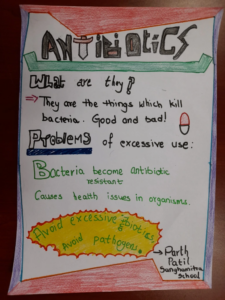 ANTIBIOTICS
What are they?
They are the things which kill
bacteria. Good and bad!
Problems of excessive use:
Bacteria become antibiotic
resistant
Causes health issues in organisms.
Avoid excessive
&
Avoid pathogens
Parth
Patil
Sanghamitra
School